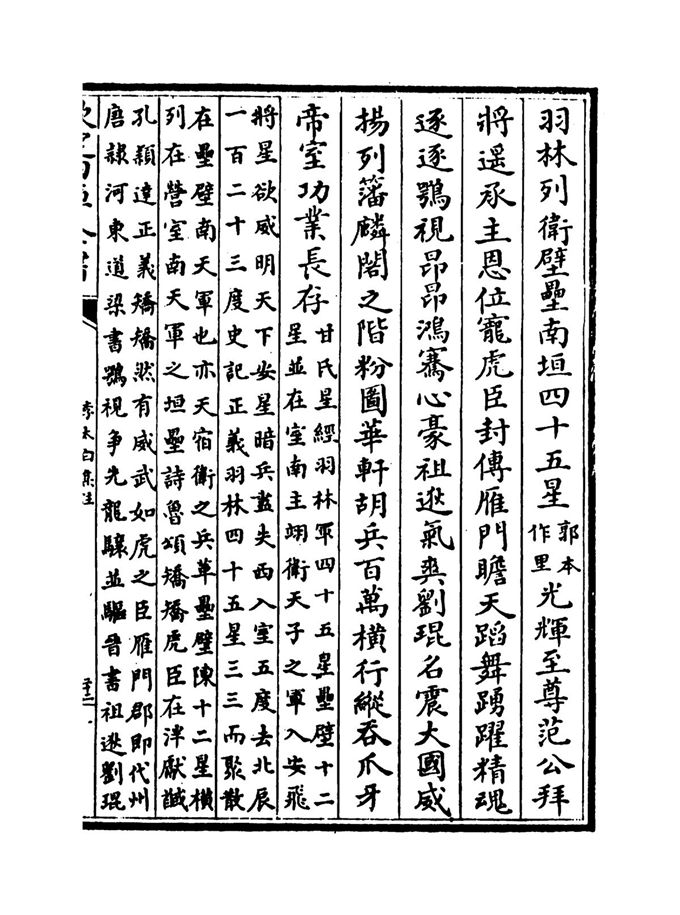 羽林列衛壁壘南垣四十五星郭本作里光輝至尊范公拜
將遥承主恩位寵虎臣封傳雁門瞻天蹈舞踴躍精魂
逐逐鶚視昂昂鴻騫心豪祖逖氣爽劉琨名震大國威
揚列藩麟閣之階粉圖華軒胡兵百萬横行縱吞爪牙
帝室功業長存甘氏星經羽林軍四十五星壘壁十二
星並在室南主翊衛天子之軍入安飛
將星欲威明天下安星暗兵盡失西入室五度去北辰
一百二十三度史記正義羽林四十五星三三而聚散
在壘壁南天軍也亦天宿衛之兵革壘壁陳十二星横
列在營室南天軍之垣壘詩魯頌矯矯虎臣在泮獻馘
孔穎達正義矯矯然有威武如虎之臣雁門郡即代州
唐隷河東道梁書鶚視争先龍驤並驅晉書祖逖劉琨
李太白集注